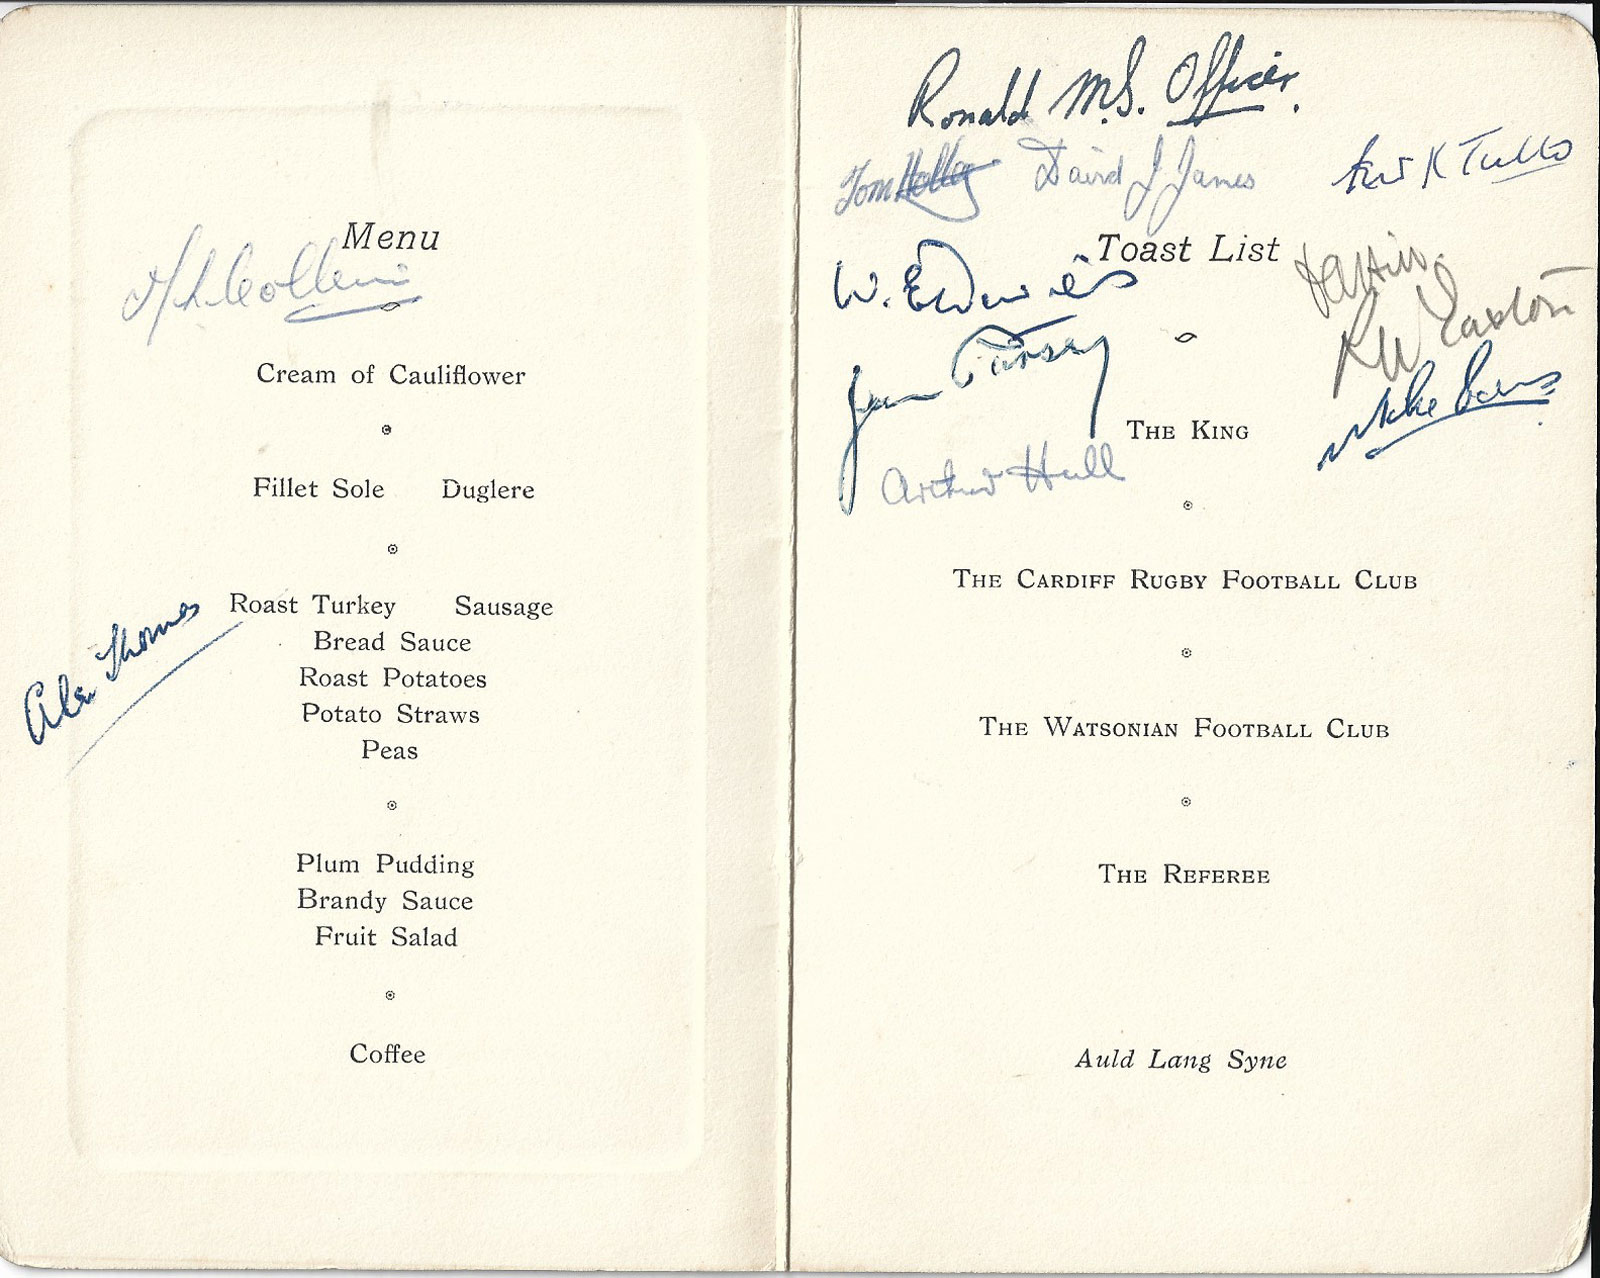 Menu
Cream of Cauliflower
Fillet Sole Duglere
Alex Thomas
Roast Turkey Sausage
Bread Sauce
Roast Potatoes
Potato Straws
Peas
Plum Pudding
Brandy Sauce
Fruit Salad
Coffee
Ronald M.S. Officer.
Tom Holley David J James
Toast List
W. Edwards
The King
Arthur Hull
The Cardiff Rugby Football Club
The Watsonian Football Club
The Referee
Auld Lang Syne